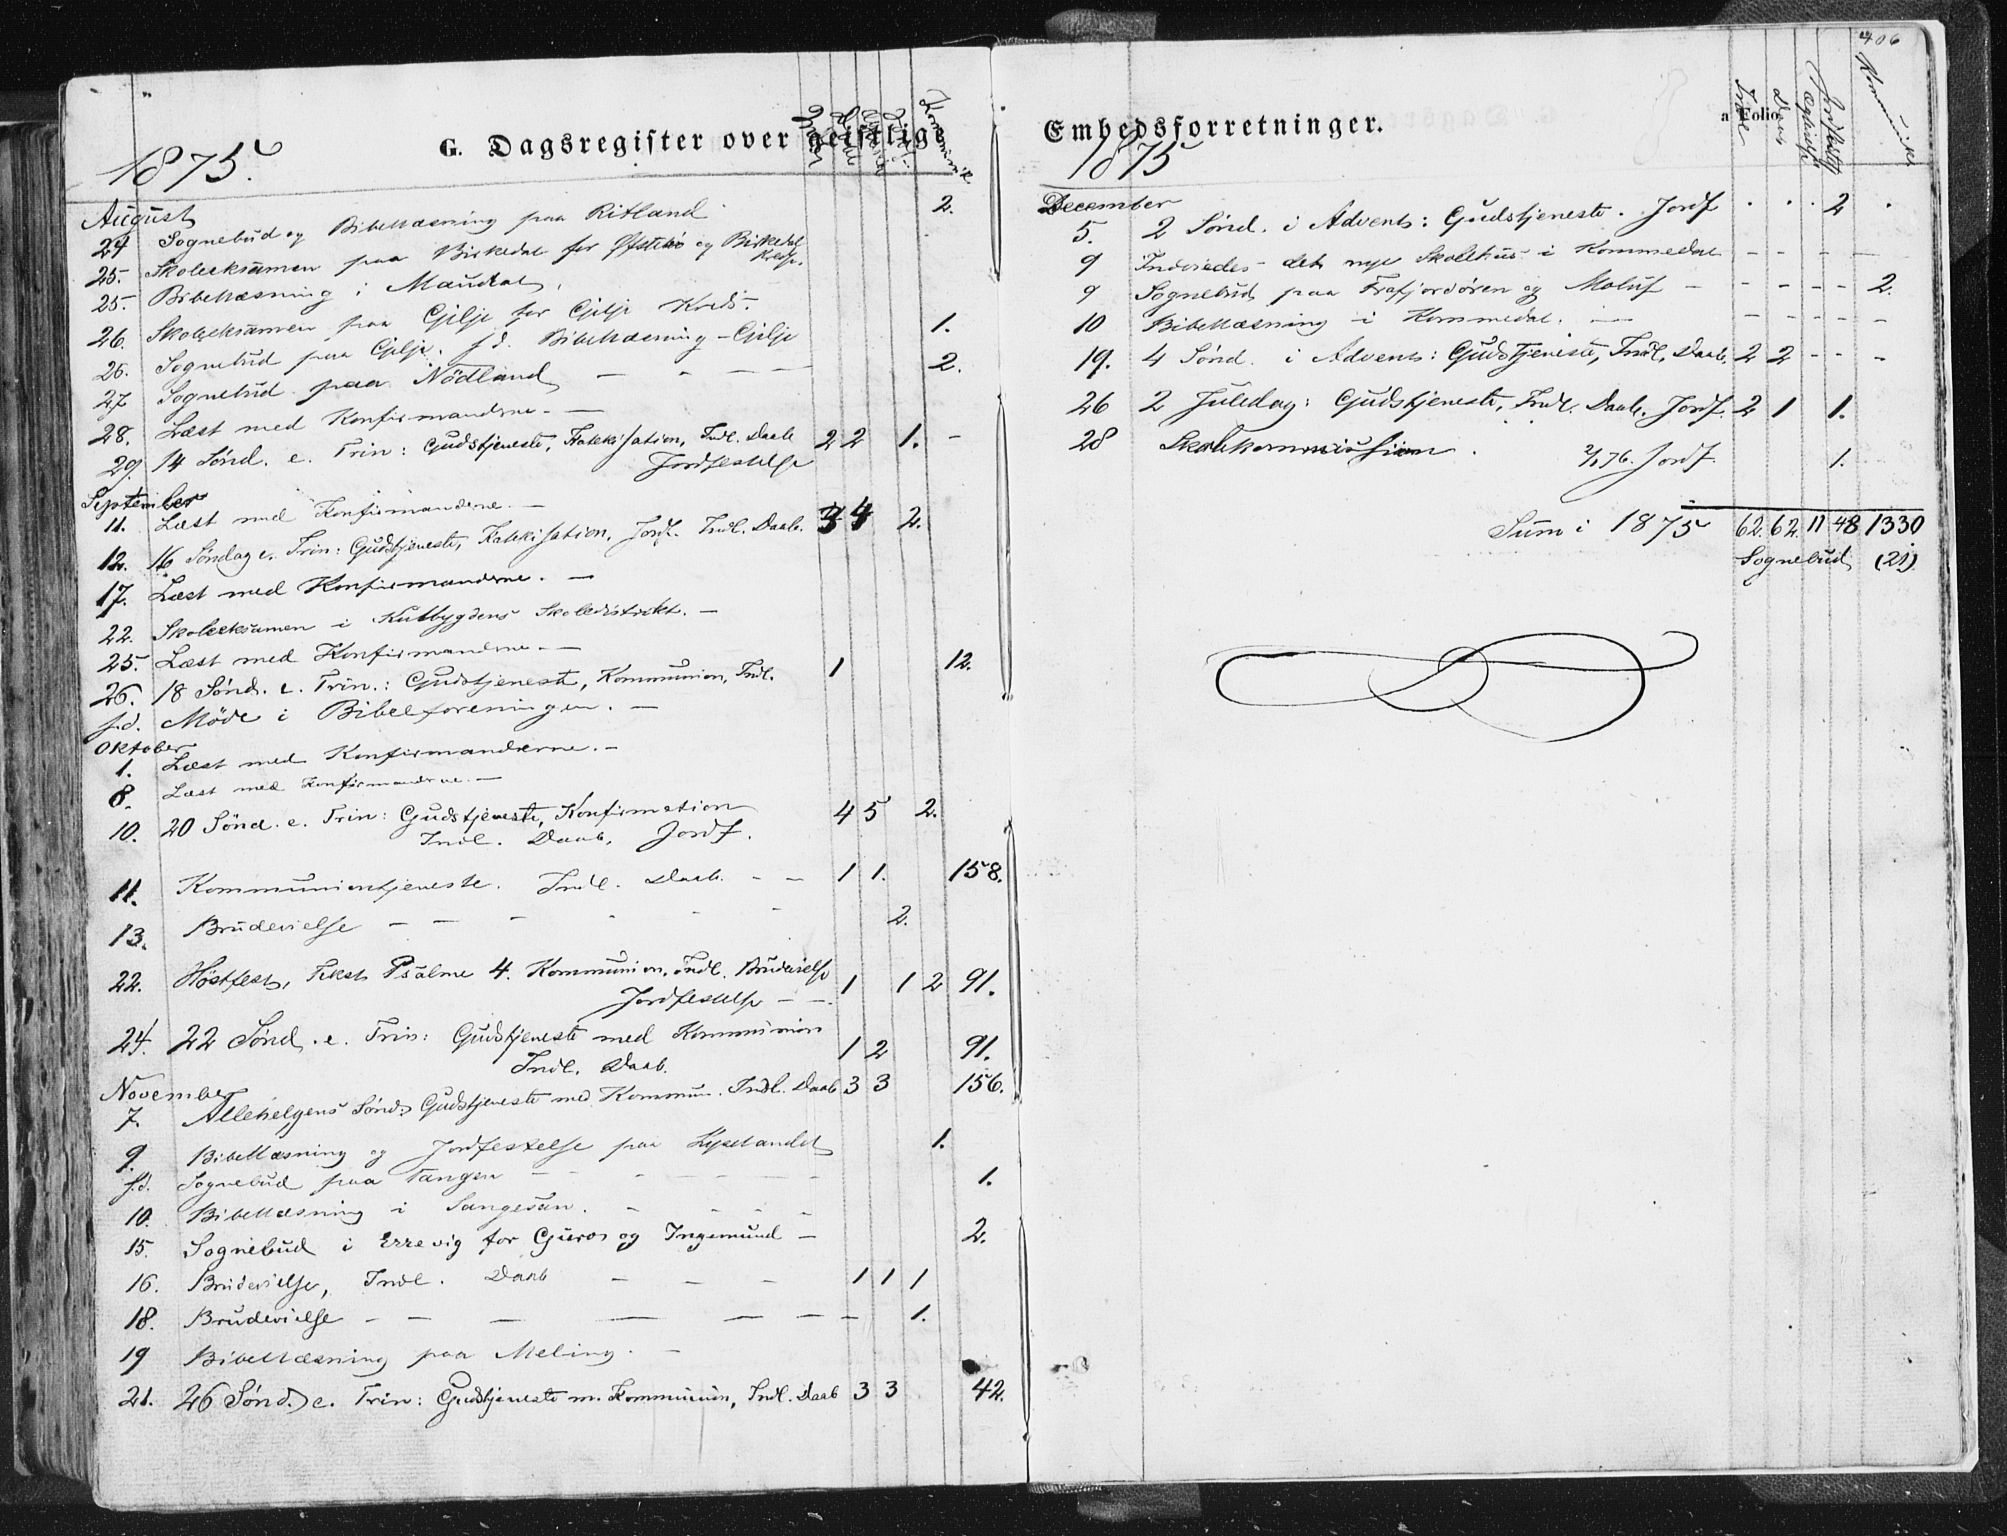 1875.
G. Dagsregister over geistlige
Kommunik
August
24 Sognebud og Bibellæsning paa Ritland 2.
25. Skoleeksamen paa Birkedal for Øfstebø og Birkedal
Kreds.
25. Bibellæsning i Maudal.
26. Skoleeksamen paa Gilje for Gilje Kreds.
26. Sognebud paa Gilje. s. d. Bibellæsning - Gilje 1.
27 Sognebud paa Nödland — - — — 2.
28. Læst med Konfirmanderne. —
29. 14 Sönd. e. Trin: Gudstjeneste, Katekisation, Indl. Daab 2 2 1. -
Jordfestelse
September
11. Læst med Konfirmanderne. —
12. 16 Söndag e. Trin: Gudstjeneste, Katekisation, Jordf. Indl. Daab. 4 2.
17. Læst med Konfirmanderne. —
22. Skoleeksamen i Skoledistrikt. —
25. Læst med Konfirmanderne. —
26. 18 Sönd. e. Trin.: Gudstjeneste, Kommunion, Indl. 1 12.
s.d. Möde i Bibelforeningen. —
Oktober
1. Læst med Konfirmanderne. —
8. Læst med Konfirmanderne. —
10. 20 Sönd. e. Trin: Gudstjeneste, Konfirmation 4 5 2.
Indl. Daab. Jordf.
11. Kommuniontjeneste. Indl. Daab. - - 1 1. 158.
13. Brudevielse - - - - - - 2.
22. Höstfest, Tekst Psalme 4. Kommunion, Indl. Brudevielse 1 1 2 91.
Jordfestelse - -
24. 22 Sönd. e. Trin: Gudstjeneste med Kommunion 1 2 91.
Indl. Daab.
November
7. Allehelgens Sönd: Gudstjeneste med Kommun. Indl. Daab 3 3 156.
9. Bibellæsning og Jordfestelse paa 1.
s.d. Sognebud paa Tangen - - - - - 1.
10. Bibellæsning i - - - -
15. Sognebud i Errevig for Guros og Ingemund - 2.
16. Brudevielse, Indl. Daab - - - 1 1 1
18. Brudevielse - - - - - - - 1.
19 Bibellæsning paa Meling. -
21. 26 Sönd. e. Trin: Gudstjeneste m. Kommunion, Indl. Daab 3 3 42.
406
Embedsforretninger.
a Folio
1875
Indl Daab Ægtevielse Jordfestelse Kommunik
December
5. 2 Sönd. i Advent: Gudstjeneste. Jordf . . . 2 .
9 Indviedes det nye Skolehus i Kommedal - - - -
9 Sognebud paa Frafjordören og Moluf - - - - - 2.
10 Bibellæsning i Kommedal. - - - - - - -
19. 4 Sönd. i Advent: Gudstjeneste, Indl, Daab. 2 2 - - -
26 2 Juledag: Gudstjeneste, Indl. Daab. Jordf. 2 1 1.
28 Skolekommission.
2/1 76. Jordf. 1.
Sum i 1875 62. 62. 11 48 1330
Sognebud (21)